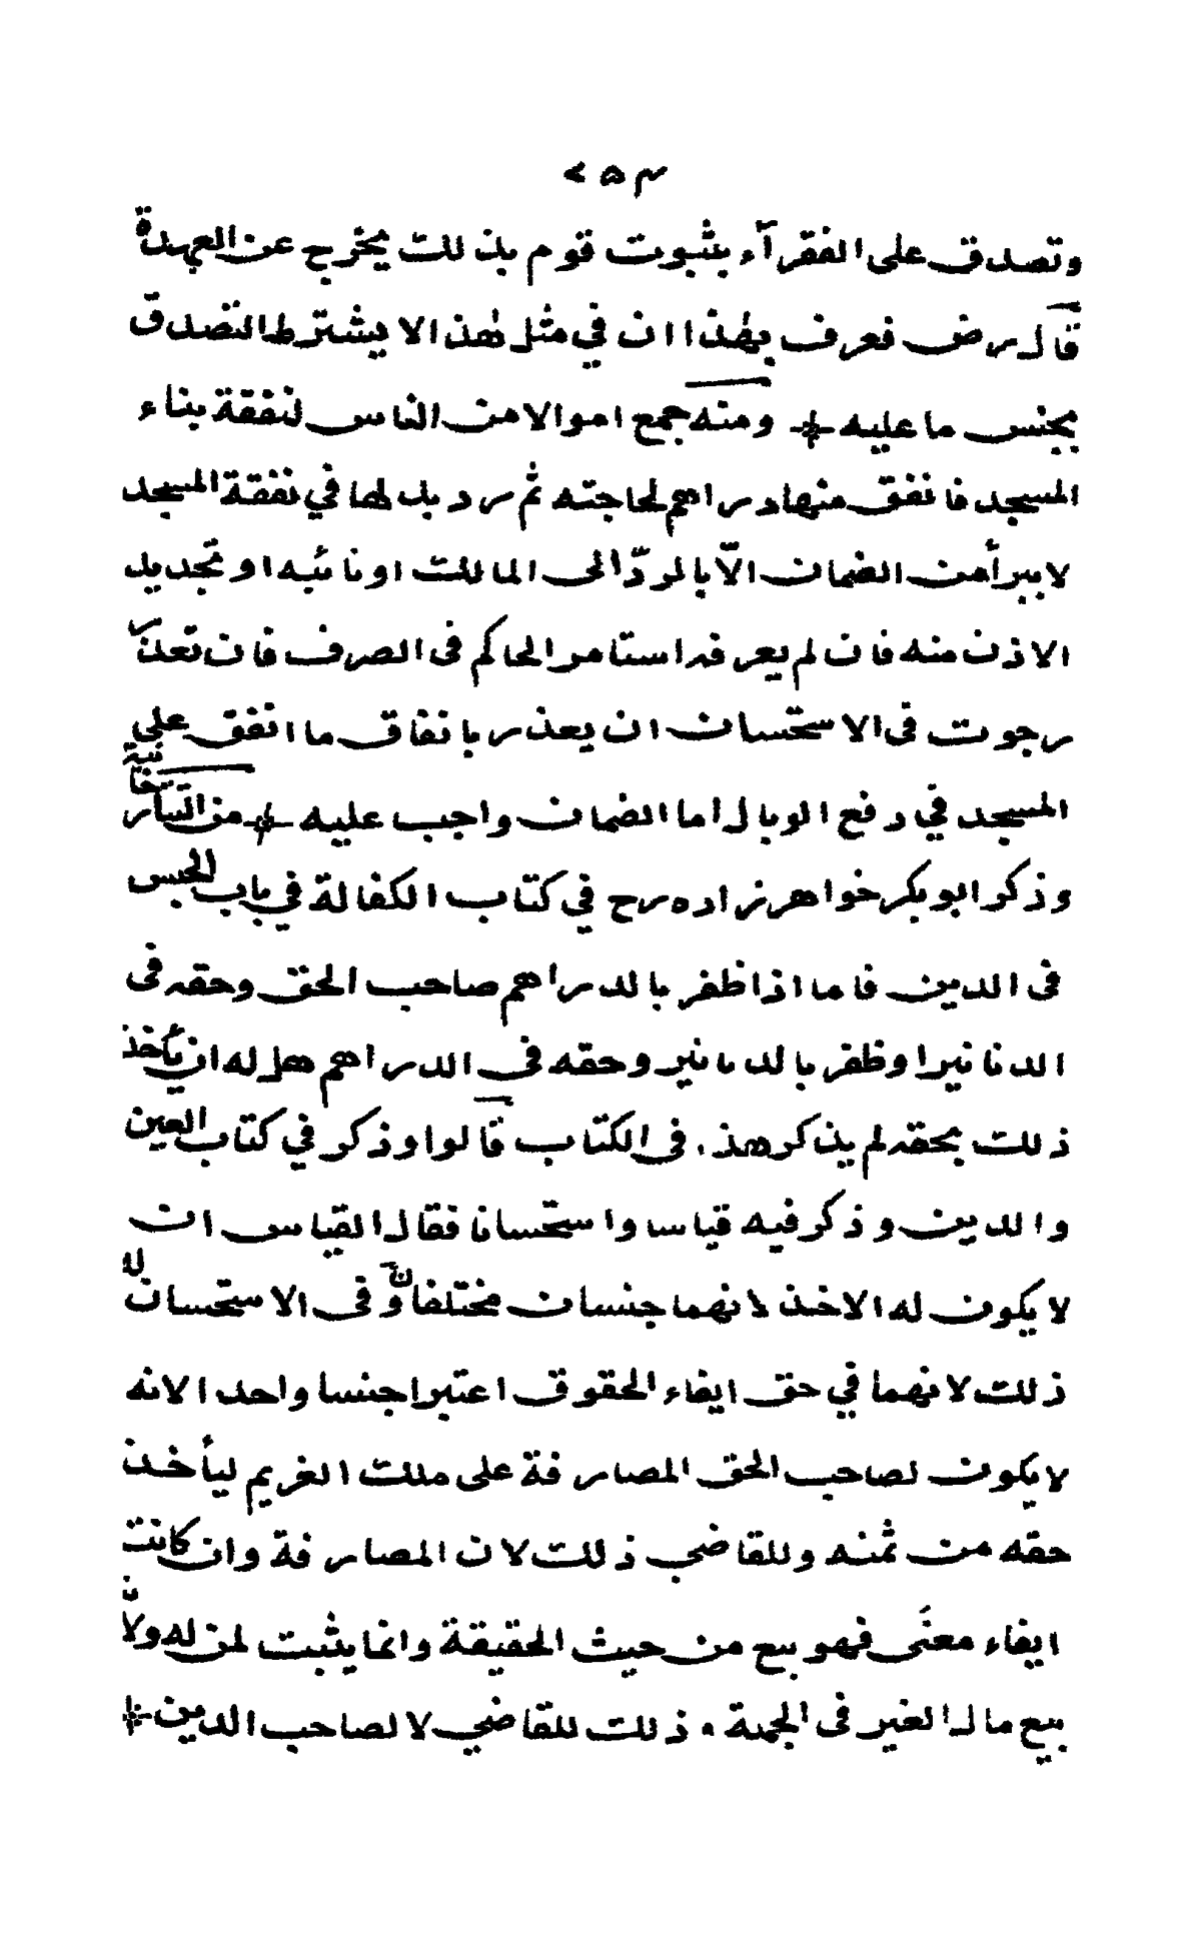 ٢٥٣
وتصدق على الفقرآء بثبوت قوم بذلك يخرج عن العهدة
قال رض فعرف بهذا ان في مثل هذا الا يشترط التصدق
بجنس ما عليه ومنه جمع اموالا من الناس لنفقة بناء
المسجد فانفق منها دراهم لحاجته ثم رد بدلها في نفقة المسجد
لا يبرأ من الضمان الّا بالردّ الى المالك او نائبه او تجديد
الاذن منه فان لم يعرفه استامر الحاكم فى الصرف فان تعذر
رجوت فى الاستحسان ان يعذر بانفاق ما انفق على
المسجد في دفع الوبال اما الضمان واجب عليه من التتارخانية
وذكر ابو بكر خواهر زاده رح في كتاب الكفالة في باب الحبس
فى الدين فاما اذا ظفر بالدراهم صاحب الحق وحقه فى
الدنانير او ظفر بالدنانير وحقه فى الدراهم هل له ان يأخذ
ذلك بحقه لم يذكر هذا فى الكتاب قالوا وذكر في كتاب العين
والدين وذكر فيه قياسا واستحسانا فقال القياس ان
لا يكون له الاخذ لانهما جنسان مختلفان وفى الاستحسان له
ذلك لانهما في حق ايفاء الحقوق اعتبرا جنسا واحدا لانه
لا يكون لصاحب الحق المصارفة على ملك الغريم ليأخذ
حقه من ثمنه وللقاضي ذلك لان المصارفة وان كانت
ايفاء معنًى فهو بيع من حيث الحقيقة وانما يثبت لمن له ولاٰن
بيع مال الغير فى الجملة وذلك للقاضي لا لصاحب الدين